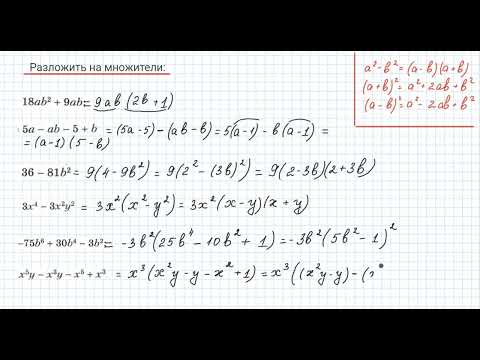 Разложить на множители:
a²-b²=(a-b)(a+b)
(a+b)²=a²+2ab+b²
(a-b)²=a²-2ab+b²
18ab² + 9ab = 9ab (2b+1)
5a − ab − 5 + b = (5a-5) - (ab-b) = 5(a-1) - b(a-1) =
= (a-1)(5-b)
36 − 81b² = 9(4-9b²) = 9(2²-(3b)²) = 9(2-3b)(2+3b)
3x⁴ − 3x²y² = 3x²(x²-y²) = 3x²(x-y)(x+y)
−75b⁶ + 30b⁴ − 3b² = -3b²(25b⁴-10b²+1) = -3b²(5b²-1)²
x⁵y − x³y − x⁵ + x³ = x³(x²y-y-x²+1) = x³((x²y-y)-(